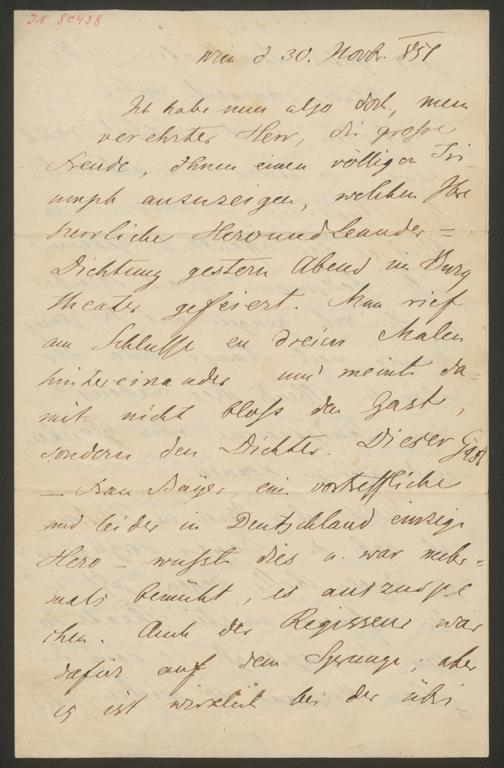 IN 80438
Wien d. 30. Novbr. 851
Ich habe nun also doch, mein
verehrter Herr, die große
Freude, Ihnen einen völligen Tri-
umph anzuzeigen, welchen Ihre
herrliche Heroundleander=
Dichtung gestern Abend im Burg
theater gefeiert. Man rief
am Schlusse zu dreien Malen
hintereinander und meinte da-
mit nicht bloß den Gast,
sondern den Dichter. Dieser Gast
– Frau Bayer, eine vortreffliche
und leider in Deutschland einzige
Hero – wußte dies u. war mehr-
mals bemüht, es auszuspre
chen. Auch der Regisseur war
dafür auf dem Sprunge, aber
es ist wirklich bei der übri-